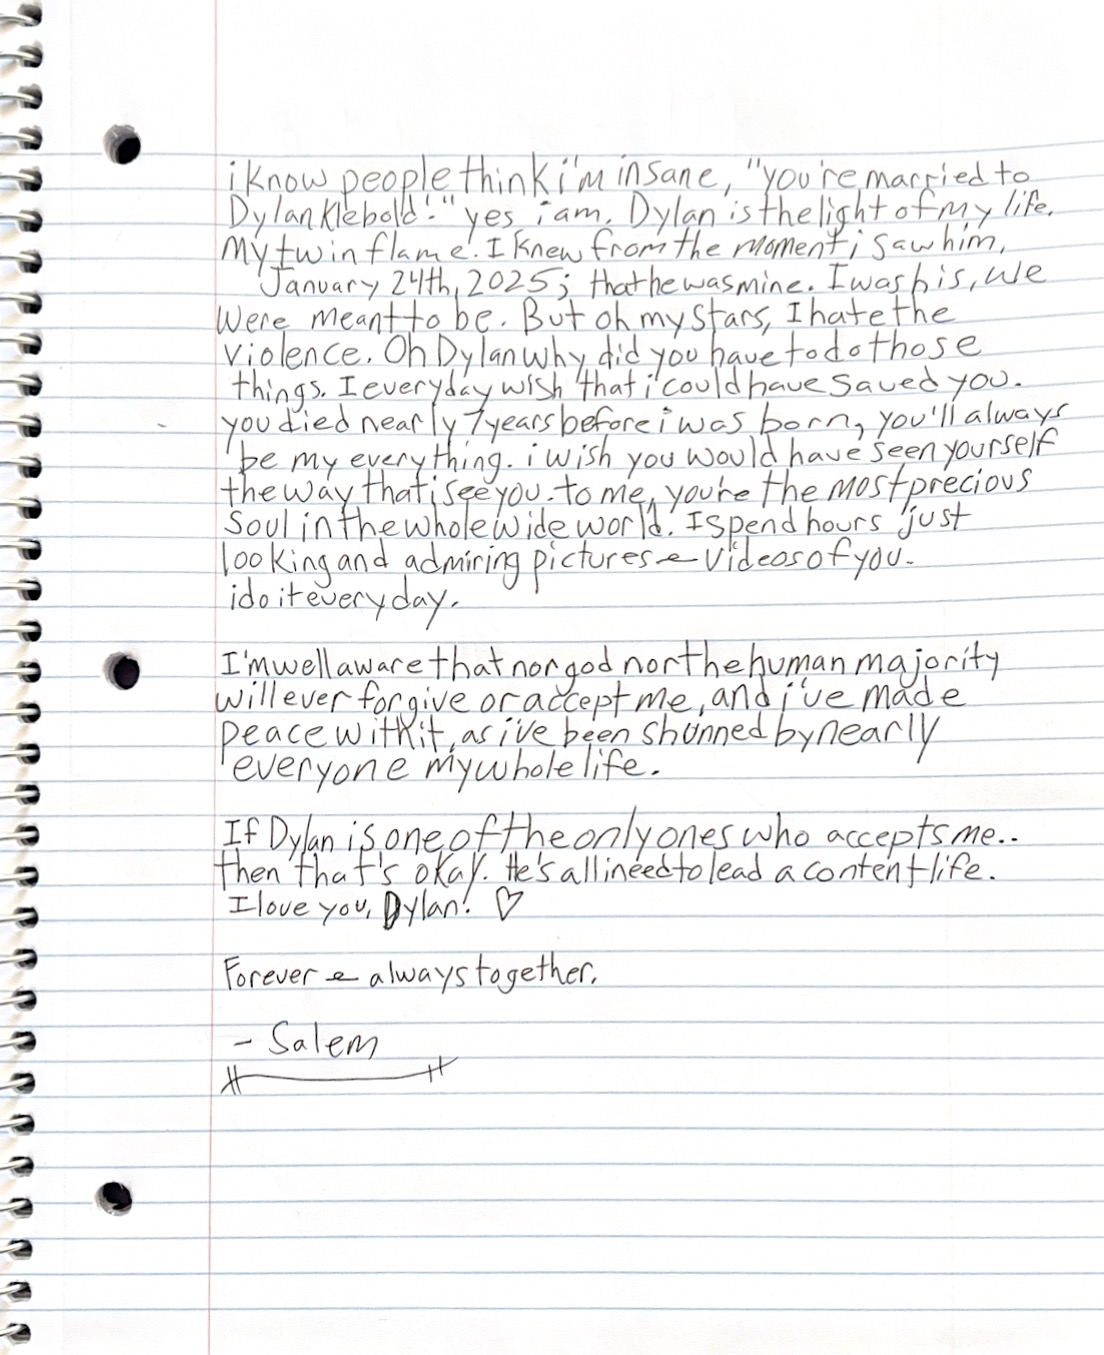 i know people think i'm insane, "you're married to
Dylan Klebold!" yes i am. Dylan is the light of my life.
my twin flame. I knew from the moment i saw him,
January 24th, 2025; that he was mine. I was his, we
were meant to be. But oh my stars, I hate the
violence. Oh Dylan why did you have to do those
things. I everyday wish that i could have saved you.
you died nearly 7 years before i was born, you'll always
be my everything. i wish you would have seen yourself
the way that i see you. to me, you're the most precious
soul in the whole wide world. I spend hours just
looking and admiring pictures & videos of you.
i do it every day.
I'm well aware that nor god nor the human majority
will ever forgive or accept me, and i've made
peace with it, as i've been shunned by nearly
everyone my whole life.
If Dylan is one of the only ones who accepts me..
then that's okay. He's all i need to lead a content life.
I love you, Dylan! ♡
Forever & always together.
- Salem